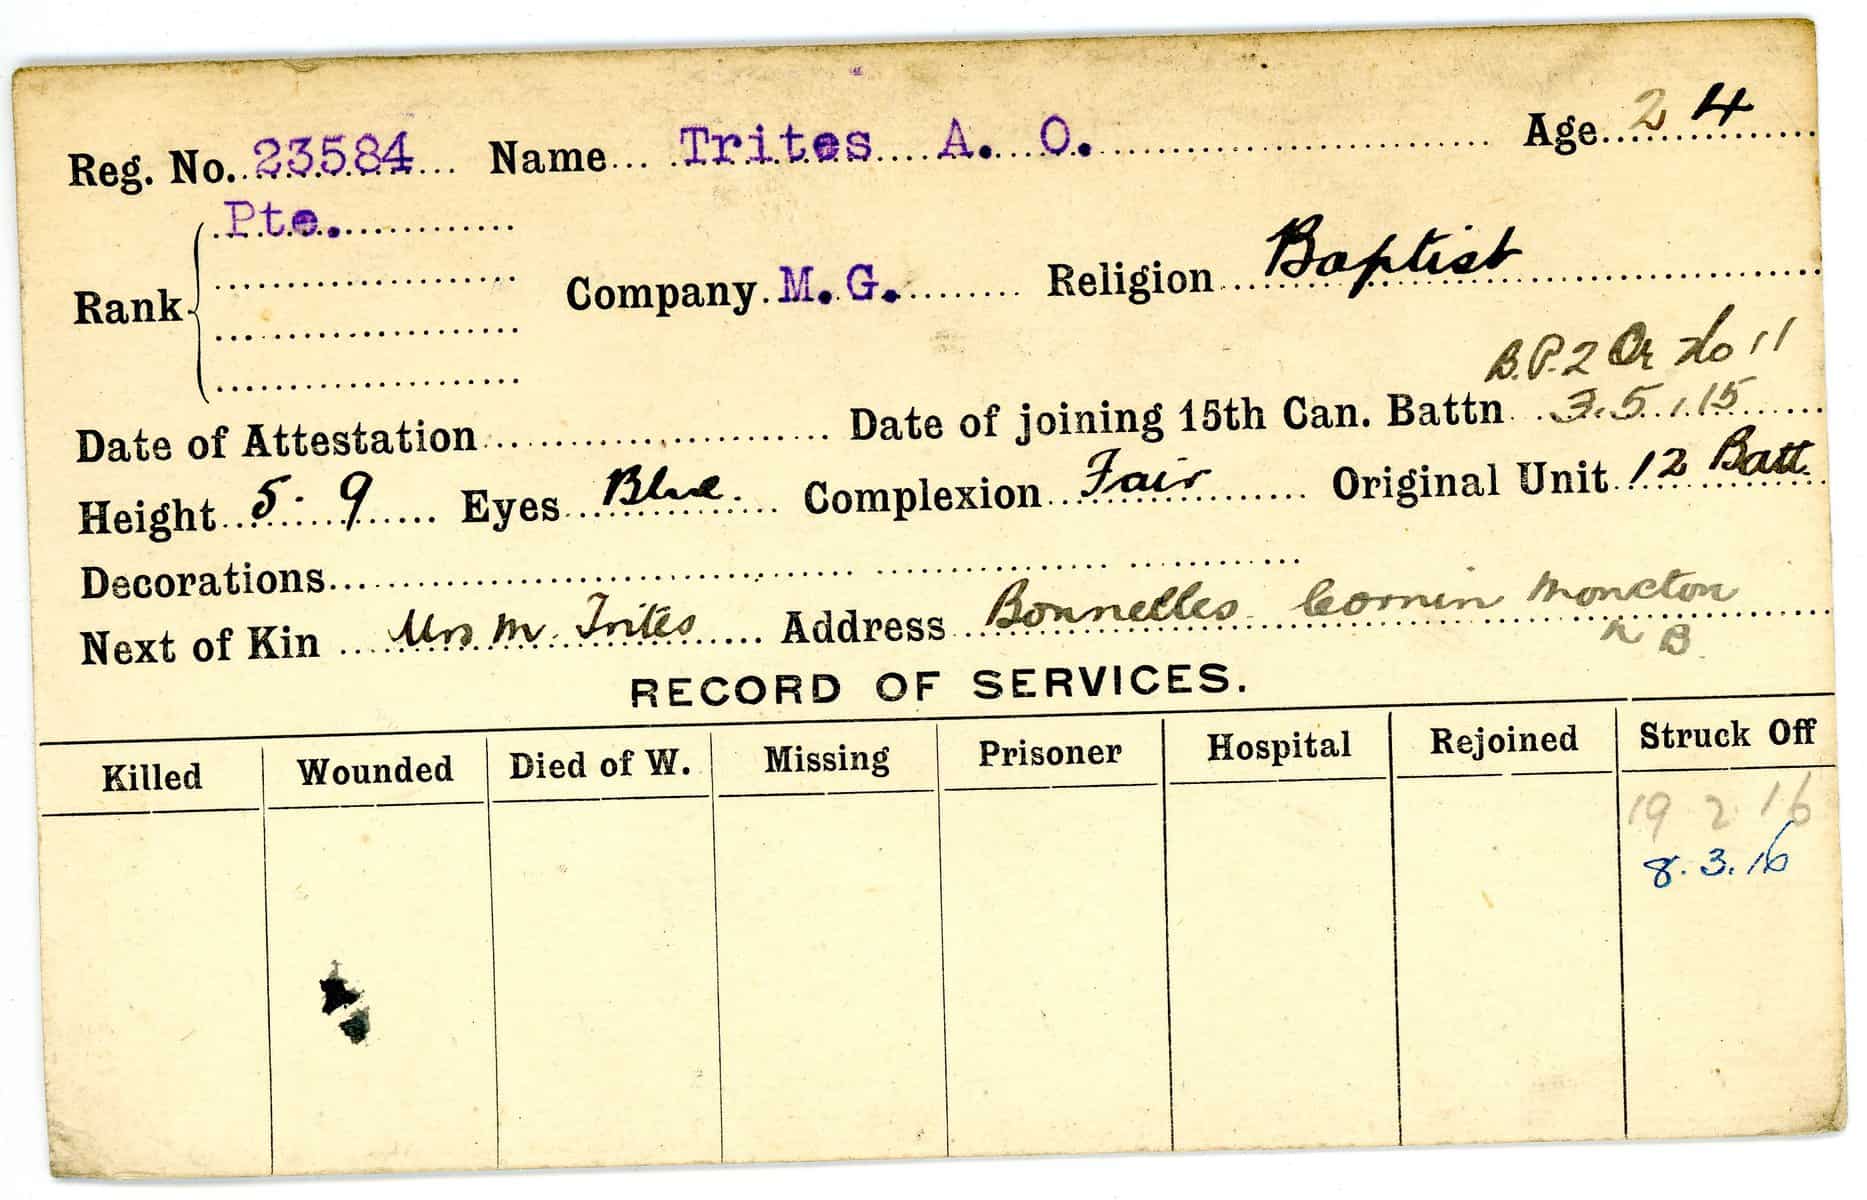 Reg. No. 23584 Name Trites A. O. Age 24
Pte.
Rank Company M. G. Religion Baptist
B.P.2 Or No 11
Date of Attestation Date of joining 15th Can. Battn 3.5.15
Height 5-9 Eyes Blue. Complexion Fair Original Unit 12 Batt.
Decorations
Next of Kin Mrs M. Trites Address Bonnelles Cornin Moncton
N B
RECORD OF SERVICES.
Killed Wounded Died of W. Missing Prisoner Hospital Rejoined Struck Off
19 2 16
8.3.16